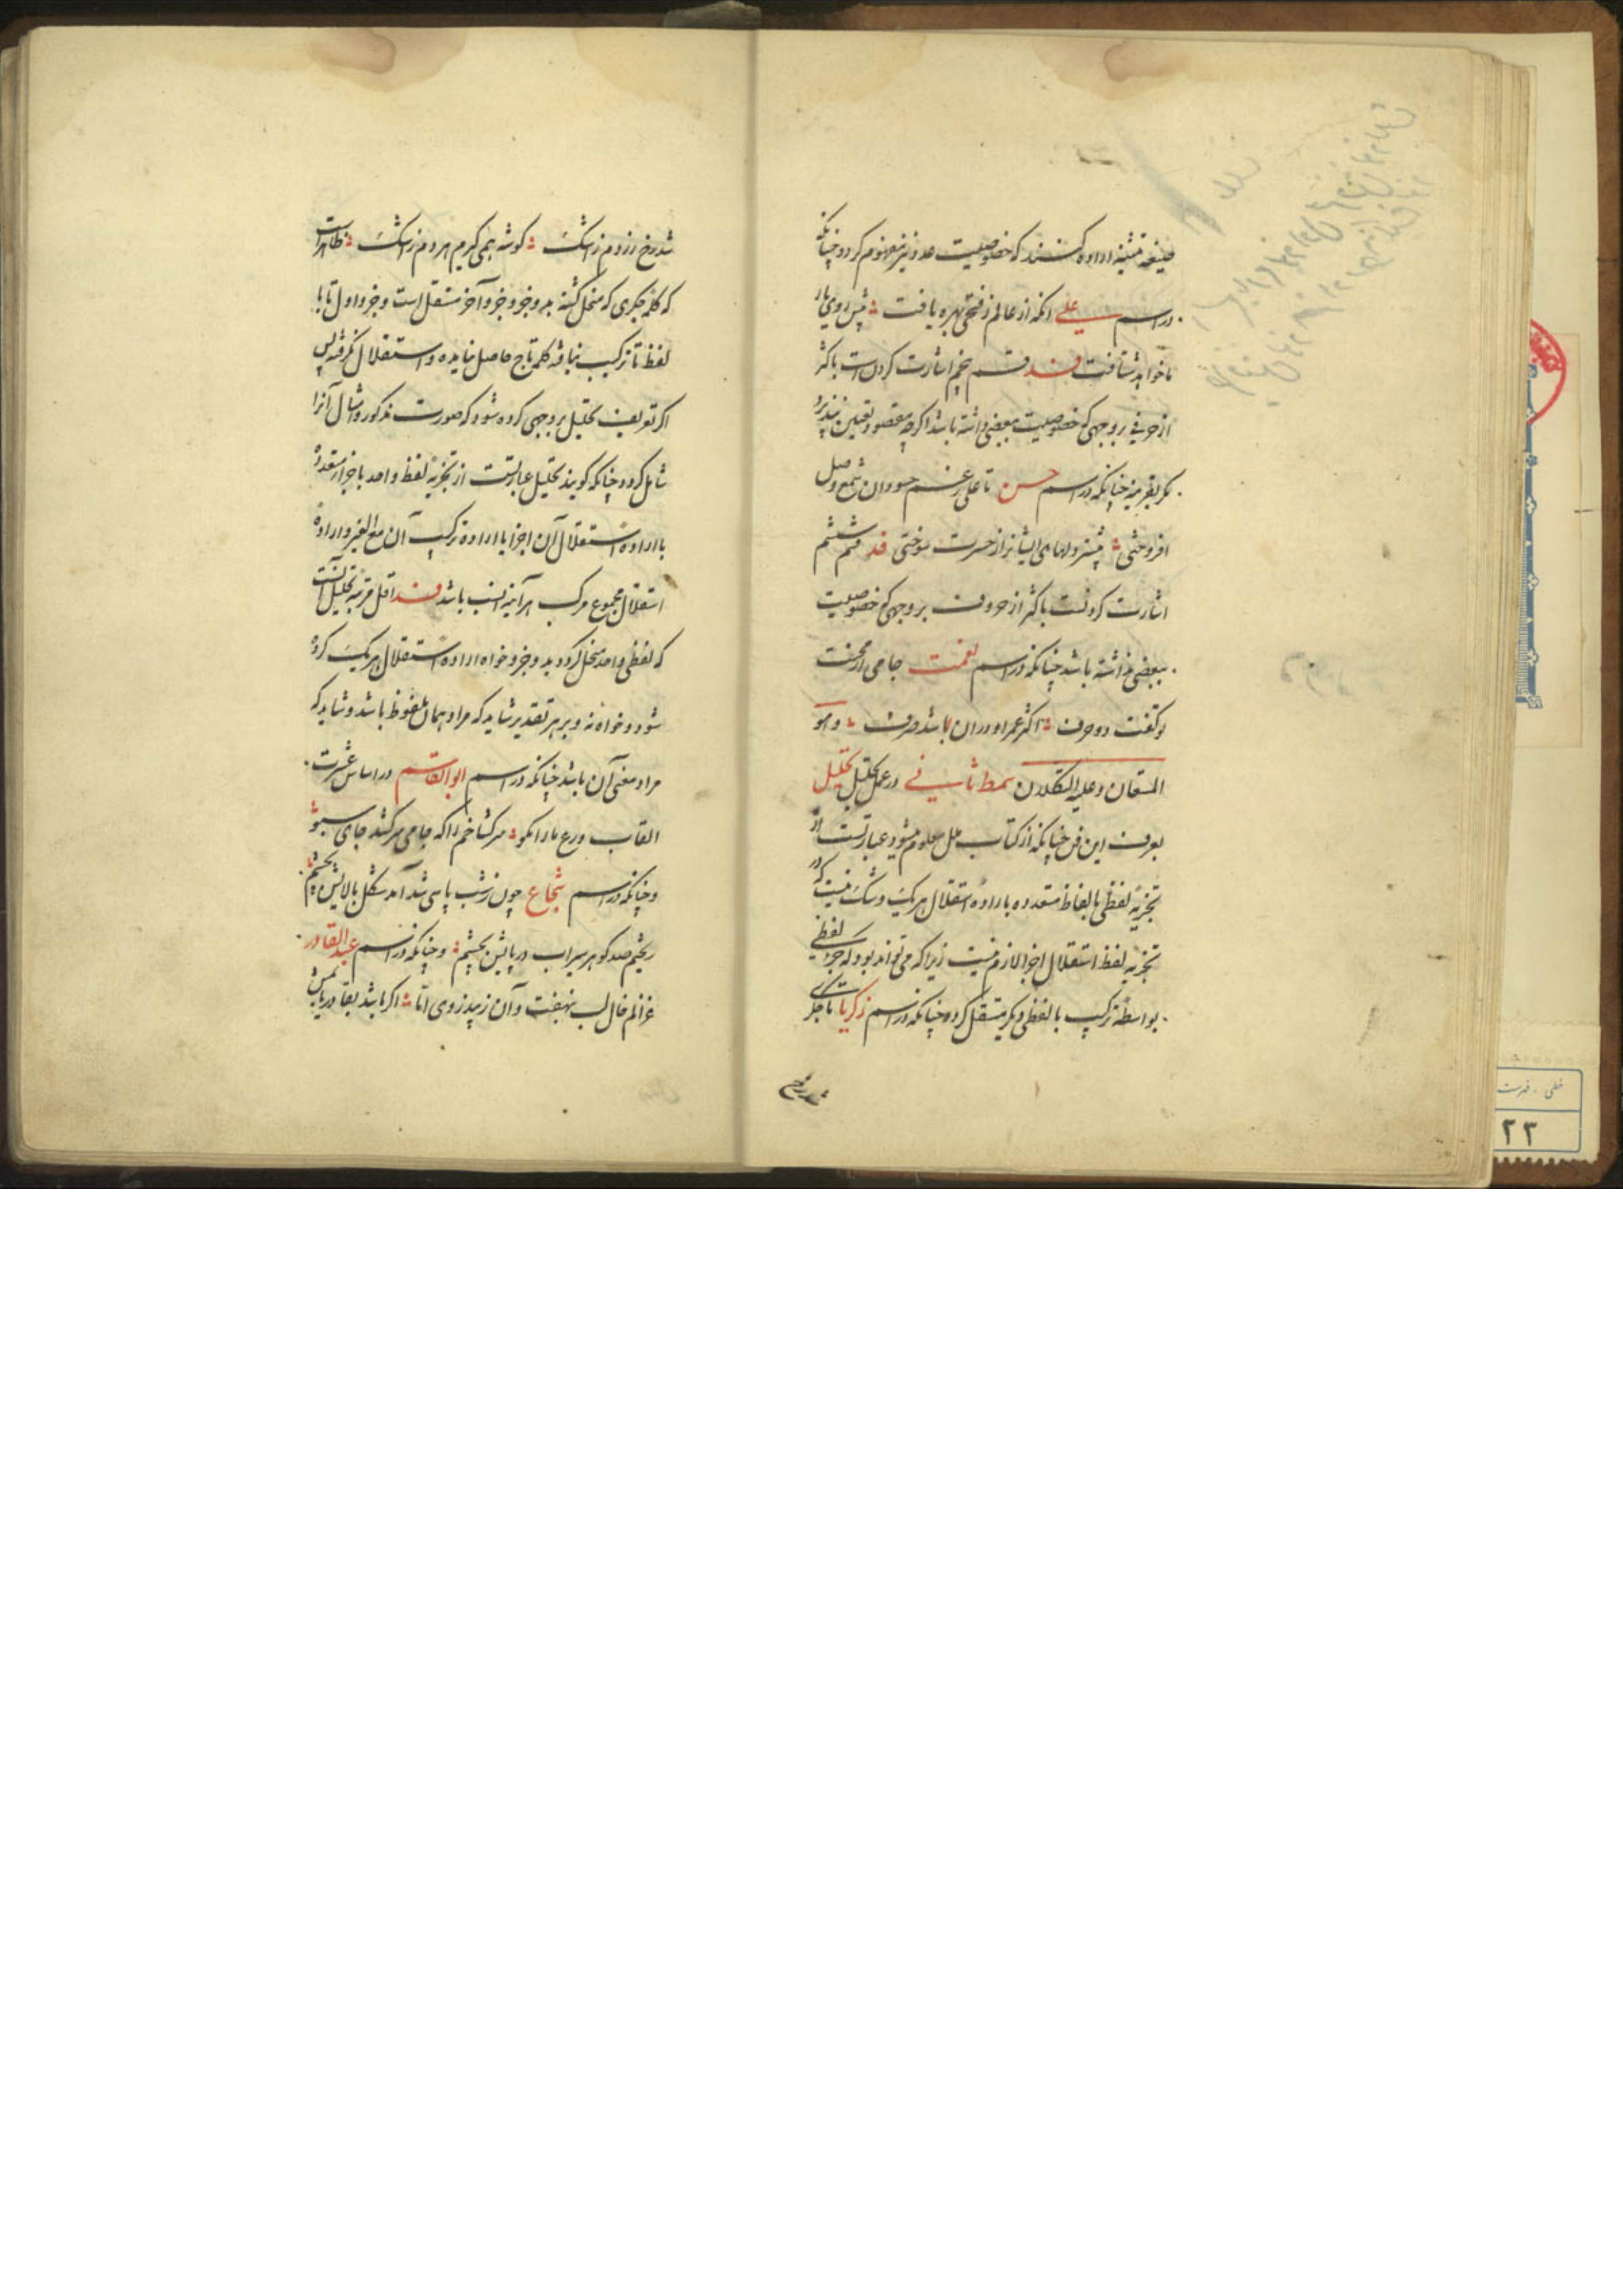 صیغه تثنیه اراده کنند که خصوصیت عدد نیز مفهوم کردد چنانکه
در اسم علی انکه از عالم زفتحی بهره یافت پیش روی یار
ما خواهد شتافت قند قسم پنجم اشارت کردن است باکثر
از حرفی بر وجهی که خصوصیت ببعضی داشته باشد اکرچه مقصود تعیین نپذیرد
مکر بقرینه چنانکه در اسم حسن تا علی رغم حسودان شمع وصل
افروختی بیشتر دلهای ایشانرا ز حسرت سوختی قند قسم ششم
اشارت کردنست باکثر از حروف بر وجهی که خصوصیت
ببعضی نداشته باشد چنانکه در اسم نعمت جامی از محنت
تو کفت دو حرف اکثر عمر او در آن باشد صرف وهو
المستعان وعلیه التکلان نمط ثانی در عمل تحلیل تحلیل
بعرف این فن چنانکه از کتاب حلل معلوم میشود عبارتست از
تجزیه لفظی بالفاظ متعدده باراده استقلال هر یک و شک نیست که در
تجزیه لفظ استقلال اجزا لازم نیست زیرا که می تواند بود که جزء لفظی
بواسطه ترکیب با لفظی دیکر مستقل کردد چنانکه در اسم زکریا تا جکری
شد رخ
شد رخ زردم ز اشک کوشه همی کیرم هر دم ز اشک ظاهر است
که کلمه جکری که منحل کشته بدو جزو جزو آخر مستقل است و جزو اول تا با
لفظ تا ترکیب نیافته کلمه تاج حاصل نیامده و استقلال نکرفته پس
اکر تعریف تحلیل بر وجهی کرده شود که صورت مذکور و امثال آنرا
شامل کردد چنانکه کویند تحلیل عبارتست از تجزیه لفظ واحد باجزاء متعدده
با اراده استقلال آن اجزا یا اراده ترکیب آن مع الغیر و اراده
استقلال مجموع مرکب هر آینه انسب باشد قند اقل مرتبه تحلیل آنست
که لفظی واحد منحل کردد بدو جزو خواه اراده استقلال هر یک کرده
شود و خواه نه و بر هر تقدیر شاید که مراد همان ملفوظ باشد و شاید که
مراد معنی آن باشد چنانکه در اسم ابوالقاسم در اساس عشرت
القاب ورع مارا مکو سر کشا خم را که جامی سر کشد جای سبو
و چنانکه در اسم شجاع چون زشب پاسی شد آمد شکل بالایش بچشم
ریختم صد کوهر سیراب در پایش بچشم و چنانکه در اسم عبدالقادر
غزالم خال لب بنهفت و آن زیبد ز روی اما اکر باشد بقا در پایش